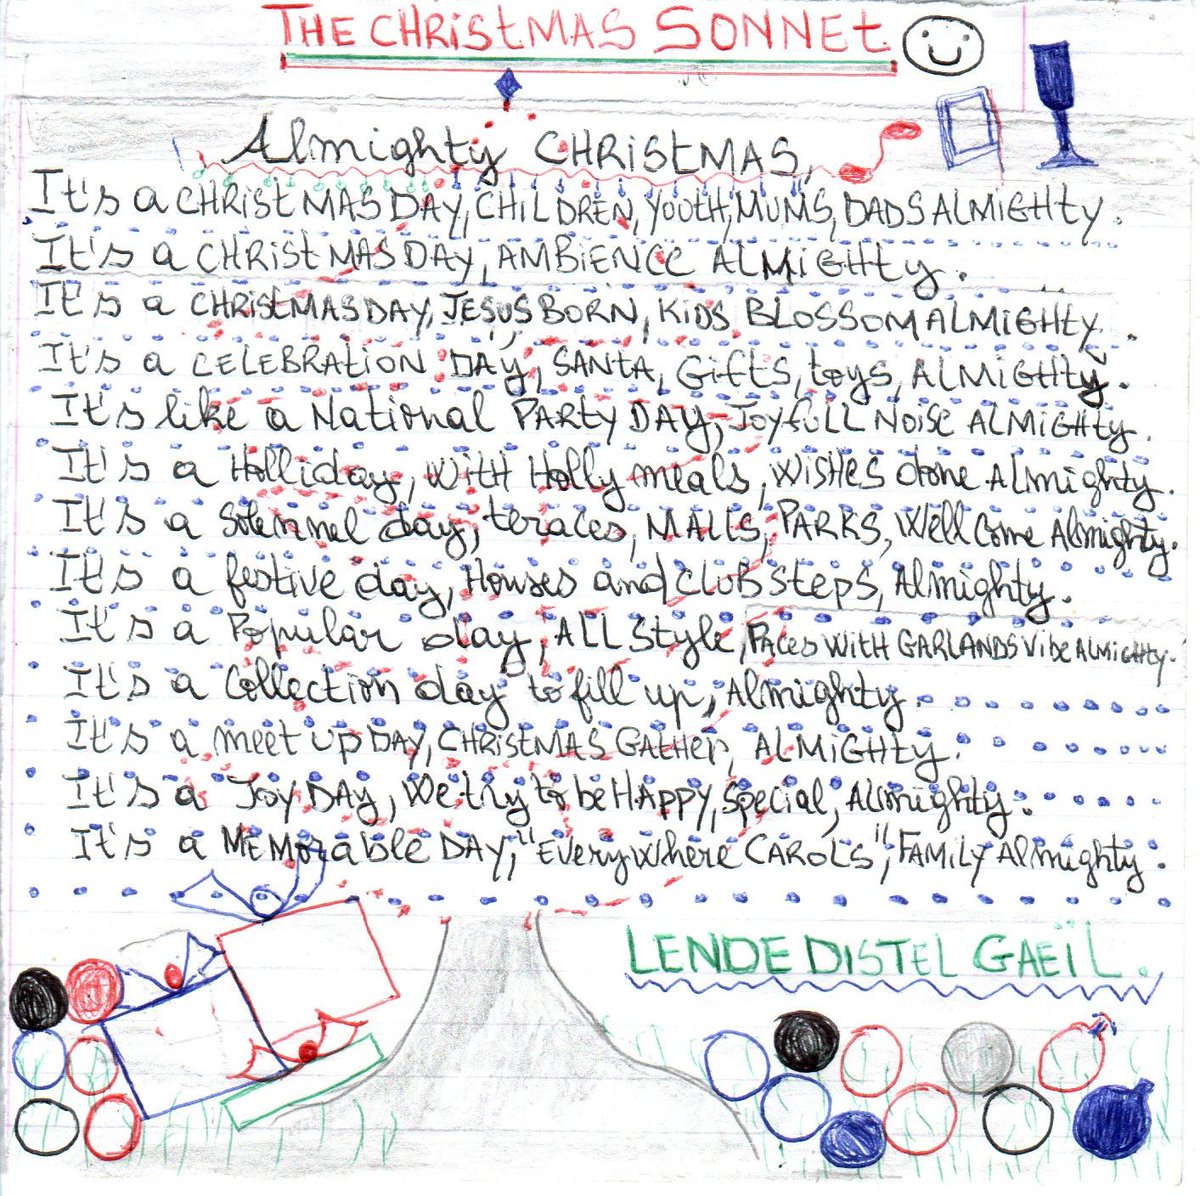 THE CHRiStMAS SONNEt
Almighty CHRiStMAS,
It's a CHRiStMAS DAY, CHiLDREN, YOUTH, MUMS, DADS ALMiGHty.
It's a CHRiStMAS DAY, AMBiENCE ALMiGHty.
It's a CHRiStMAS DAY, JESUS BORN, KiDS BLOSSOM ALMiGHty.
It's a CELEBRAtiON DAy, SANTA, Gifts, toys, ALMiGHty.
It's like a National PARTY DAY, JOYfULL NOiSE ALMiGHty.
It's a Holliday, WitH Holly meals, WiSHES done Almighty.
It's a Solemnel day, teraces, MALLS, PARKS, Well Come Almighty.
It's a festive day, Houses and CLUB StepS, Almighty.
It's a Popular day, ALL Style, PAces WitH GARLANDS Vibe ALMiGHty.
It's a Collection day to fill up, Almighty.
It's a meet up DAY, CHRiStMAS GatHer, ALMiGHty.
It's a JOY DAY, We try to be HAPPY, Special, Almighty.
It's a MEMorable DAY, "EveryWhere CAROLS", FAMiLY Almighty.
LENDE DISTEL GAEÏL.